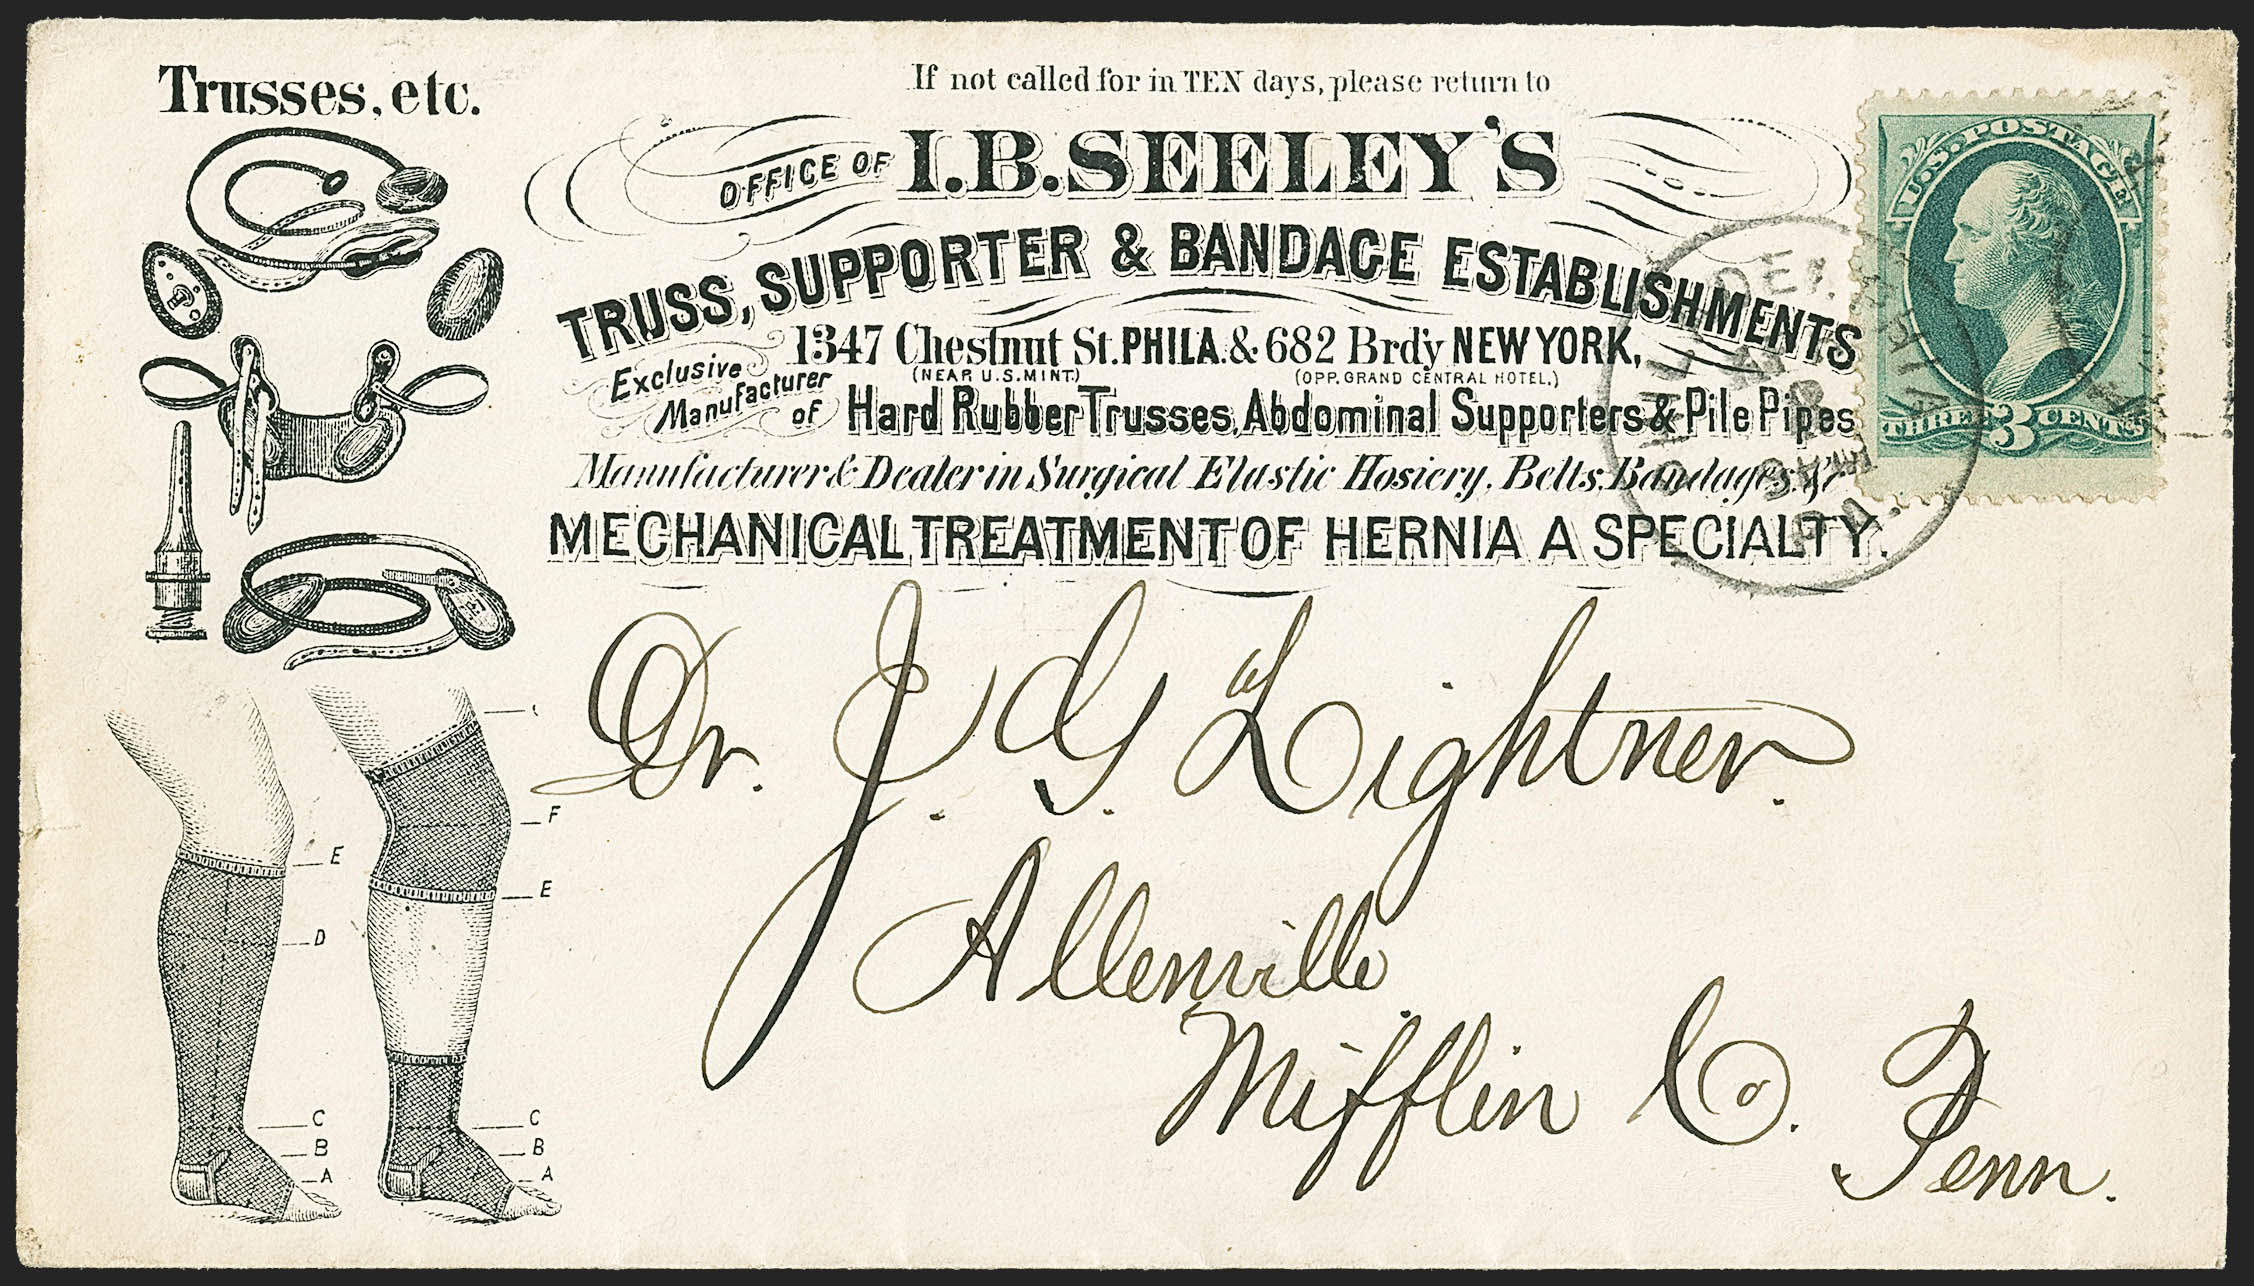 Trusses, etc.
If not called for in TEN days, please return to
OFFICE OF I.B. SEELEY'S
TRUSS, SUPPORTER & BANDAGE ESTABLISHMENTS
1347 Chestnut St. PHILA. & 682 Brdy NEW YORK,
(NEAR U.S. MINT.) (OPP. GRAND CENTRAL HOTEL.)
Exclusive Manufacturer of Hard Rubber Trusses, Abdominal Supporters & Pile Pipes
Manufacturer & Dealer in Surgical Elastic Hosiery, Belts, Bandages, &c
MECHANICAL TREATMENT OF HERNIA A SPECIALTY.
U.S. POSTAGE
THREE 3 CENTS
PHILADELPHIA
PA.
Dr. J. G. Lightner.
Allenville
Mifflin Co. Penn.
E
D
C
B
A
F
E
C
B
A